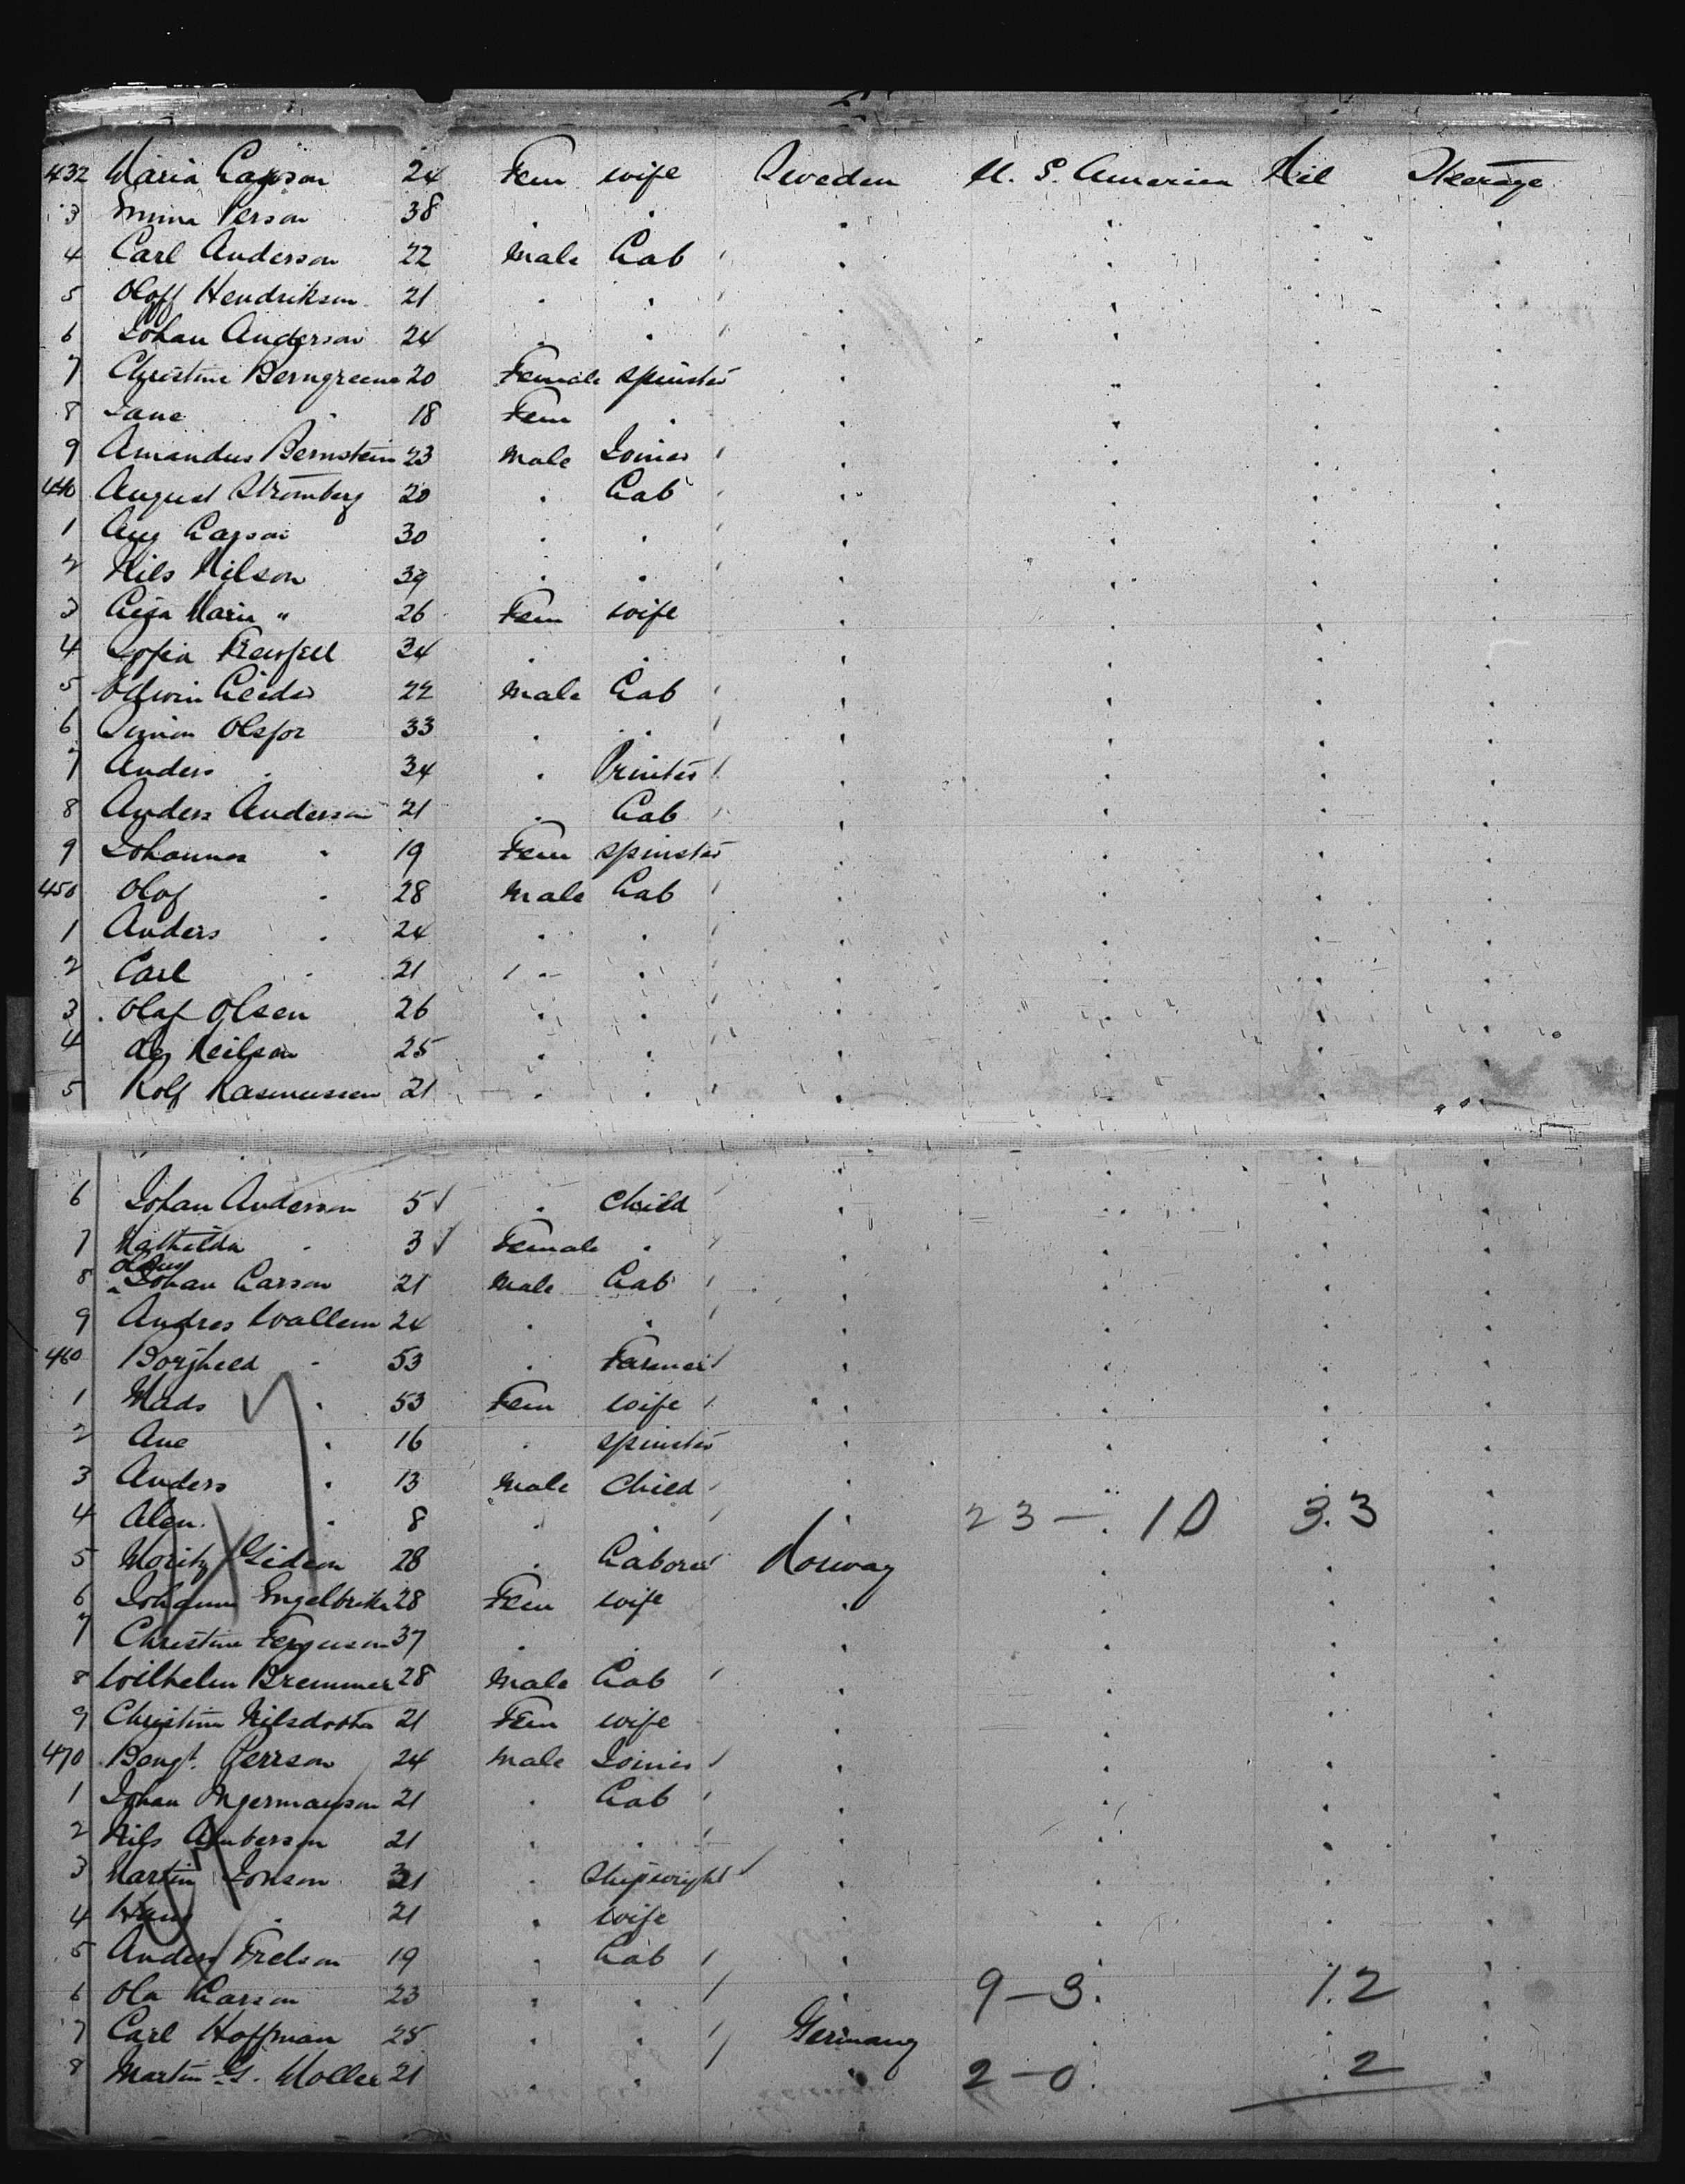 432 Maria Larson 24 Fem wife Sweden U. S. America Nil Steerage
3 Emma Person 38 . . . . . .
4 Carl Anderson 22 Male Lab / . . . .
5 Oloff Hendrikson 21 . . / . . . .
6 Johan Anderson 24 . . / . . . .
7 Christine Berngreene 20 Female Spinster . . . .
8 Jane . 18 Fem . . . . .
9 Amandus Bernstein 23 Male Joiner / . . . .
440 August Stromberg 20 . Lab / . . . .
1 Aug Larson 30 . . / . . . .
2 Nils Nilson 39 . . / . . . .
3 Maria " 26 Fem wife . . . .
4 Sofia 34 . . . . . .
5 Edwin 22 Male Lab / . . . .
6 Simon 33 . . / . . . .
7 Anders . 34 . Printer / . . . .
8 Anders Anderson 21 . Lab / . . . .
9 Johannes . 19 Fem Spinster . . . .
450 Olof . 28 Male Lab / . . . .
1 Anders . 24 . . / . . . .
2 Carl . 21 . . / . . . .
3 Olaf Olsen 26 . . / . . . .
4 Neilson 25 . . / . . . .
5 Rolf Rasmussen 21 . . / . . . .
6 Johan Anderson 5 √ . Child / . . . .
7 Mathilda . 3 √ Female . / . . . .
8 Johan Larson 21 Male Lab / . . . .
9 Andres Wallem 24 . . / . . . .
460 . 53 . Farmer / . . . .
1 Mads . 53 Fem wife / . . . .
2 Ane . 16 . Spinster . . . .
3 Anders . 13 Male Child / . . . .
4 . 8 . . / . 23 — 10 3.3 .
5 Moritz Gideon 28 . Laborer / Norway . . .
6 28 Fem wife . . . .
7 Christine Ferguson 37 . . . . . .
8 Wilhelm Bremmer 28 Male Lab / . . . .
9 Christine Nilsdotter 21 Fem wife . . . .
470 Bengt Perrson 24 Male Joiner / . . . .
1 Johan Ingermanson 21 . Lab / . . . .
2 Nils 21 . . / . . . .
3 Martin Jonson . Shipwright / . . . .
4 . 21 . wife . . . .
5 Anders 19 . Lab / . . . .
6 Ola Larson 23 . . / . 9 — 3 1.2 .
7 Carl Hoffman 25 . . / Germany . . .
8 Martin G. Moller 21 . . / . 2 — 0 . 2 .